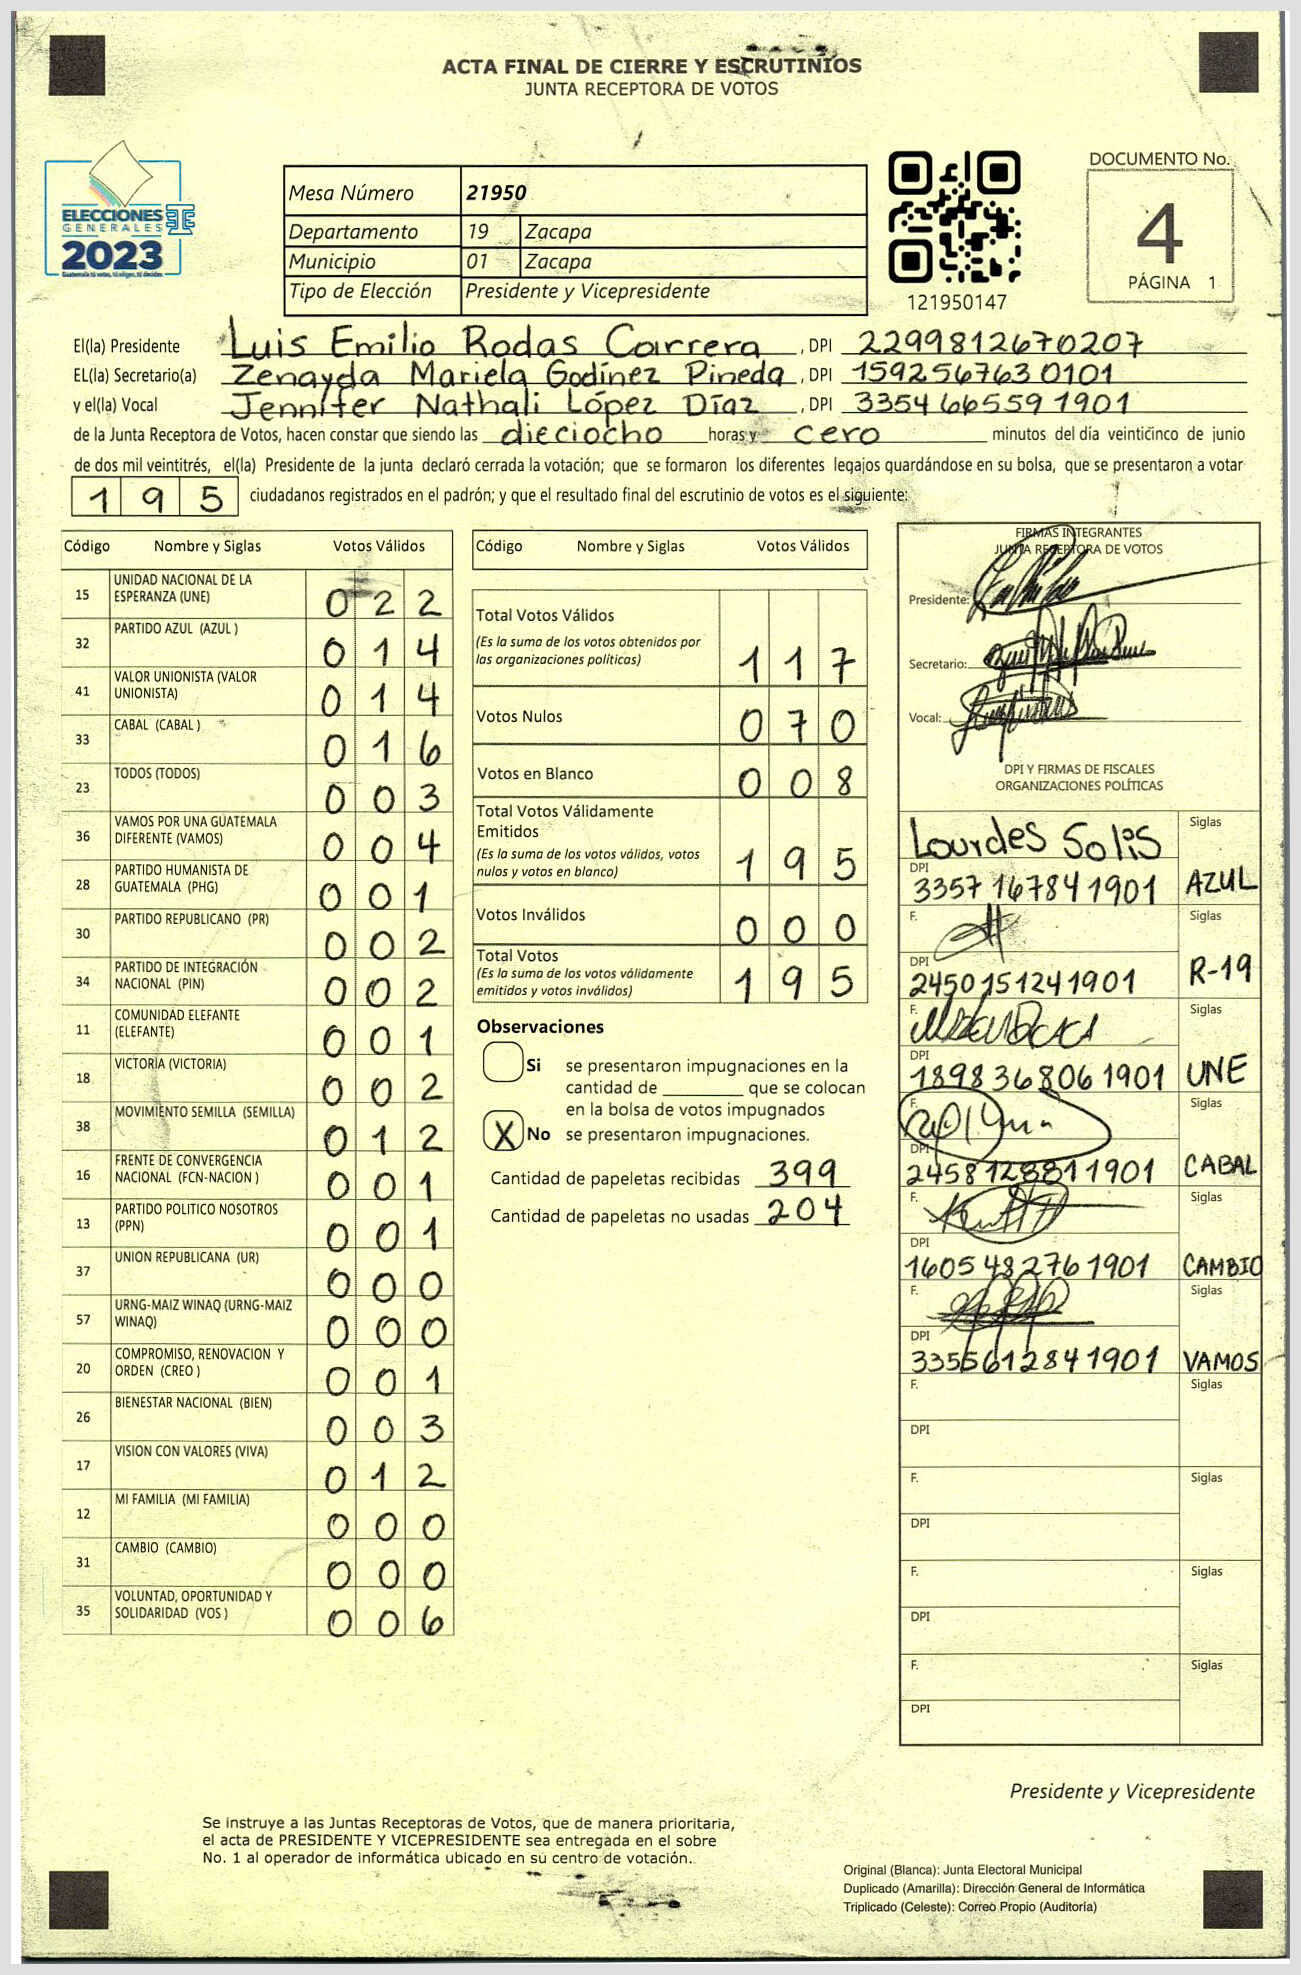 ACTA FINAL DE CIERRE Y ESCRUTINIOS
JUNTA RECEPTORA DE VOTOS
ELECCIONES
GENERALES
2023
Guatemala tú votas, tú eliges, tú decides
Mesa Número 21950
Departamento 19 Zacapa
Municipio 01 Zacapa
Tipo de Elección Presidente y Vicepresidente
121950147
DOCUMENTO No.
4
PÁGINA 1
El(la) Presidente Luis Emilio Rodas Carrera, DPI 2299812670207
EL(la) Secretario(a) Zenayda Mariela Godínez Pineda, DPI 1592567630101
y el(la) Vocal Jennifer Nathali López Díaz, DPI 3354665591901
de la Junta Receptora de Votos, hacen constar que siendo las dieciocho horas y cero minutos del día veinticinco de junio
de dos mil veintitrés, el(la) Presidente de la junta declaró cerrada la votación; que se formaron los diferentes legajos guardándose en su bolsa, que se presentaron a votar
195 ciudadanos registrados en el padrón; y que el resultado final del escrutinio de votos es el siguiente:
Código Nombre y Siglas Votos Válidos
15 UNIDAD NACIONAL DE LA ESPERANZA (UNE) 022
32 PARTIDO AZUL (AZUL ) 014
41 VALOR UNIONISTA (VALOR UNIONISTA) 014
33 CABAL (CABAL ) 016
23 TODOS (TODOS) 003
36 VAMOS POR UNA GUATEMALA DIFERENTE (VAMOS) 004
28 PARTIDO HUMANISTA DE GUATEMALA (PHG) 001
30 PARTIDO REPUBLICANO (PR) 002
34 PARTIDO DE INTEGRACIÓN NACIONAL (PIN) 002
11 COMUNIDAD ELEFANTE (ELEFANTE) 001
18 VICTORIA (VICTORIA) 002
38 MOVIMIENTO SEMILLA (SEMILLA) 012
16 FRENTE DE CONVERGENCIA NACIONAL (FCN-NACION ) 001
13 PARTIDO POLITICO NOSOTROS (PPN) 001
37 UNION REPUBLICANA (UR) 000
57 URNG-MAIZ WINAQ (URNG-MAIZ WINAQ) 000
20 COMPROMISO, RENOVACION Y ORDEN (CREO ) 001
26 BIENESTAR NACIONAL (BIEN) 003
17 VISION CON VALORES (VIVA) 012
12 MI FAMILIA (MI FAMILIA) 000
31 CAMBIO (CAMBIO) 000
35 VOLUNTAD, OPORTUNIDAD Y SOLIDARIDAD (VOS ) 006
Código Nombre y Siglas Votos Válidos
Total Votos Válidos
(Es la suma de los votos obtenidos por
las organizaciones políticas) 117
Votos Nulos 070
Votos en Blanco 008
Total Votos Válidamente
Emitidos
(Es la suma de los votos válidos, votos
nulos y votos en blanco) 195
Votos Inválidos 000
Total Votos
(Es la suma de los votos válidamente
emitidos y votos inválidos) 195
Observaciones
Si se presentaron impugnaciones en la
cantidad de ________ que se colocan
en la bolsa de votos impugnados
X No se presentaron impugnaciones.
Cantidad de papeletas recibidas 399
Cantidad de papeletas no usadas 204
FIRMAS INTEGRANTES
JUNTA RECEPTORA DE VOTOS
Presidente:
Secretario:
Vocal:
DPI Y FIRMAS DE FISCALES
ORGANIZACIONES POLÍTICAS
Lourdes Solis Siglas
DPI 3357167841901 AZUL
F. Siglas
DPI 2450151241901 R-19
F. Siglas
DPI 1898368061901 UNE
F. Siglas
DPI 2458128811901 CABAL
F. Siglas
DPI 1605482761901 CAMBIO
F. Siglas
DPI 3355612841901 VAMOS
F. Siglas
DPI
F. Siglas
DPI
F. Siglas
DPI
F. Siglas
DPI
Presidente y Vicepresidente
Se instruye a las Juntas Receptoras de Votos, que de manera prioritaria,
el acta de PRESIDENTE Y VICEPRESIDENTE sea entregada en el sobre
No. 1 al operador de informática ubicado en su centro de votación.
Original (Blanca): Junta Electoral Municipal
Duplicado (Amarilla): Dirección General de Informática
Triplicado (Celeste): Correo Propio (Auditoría)